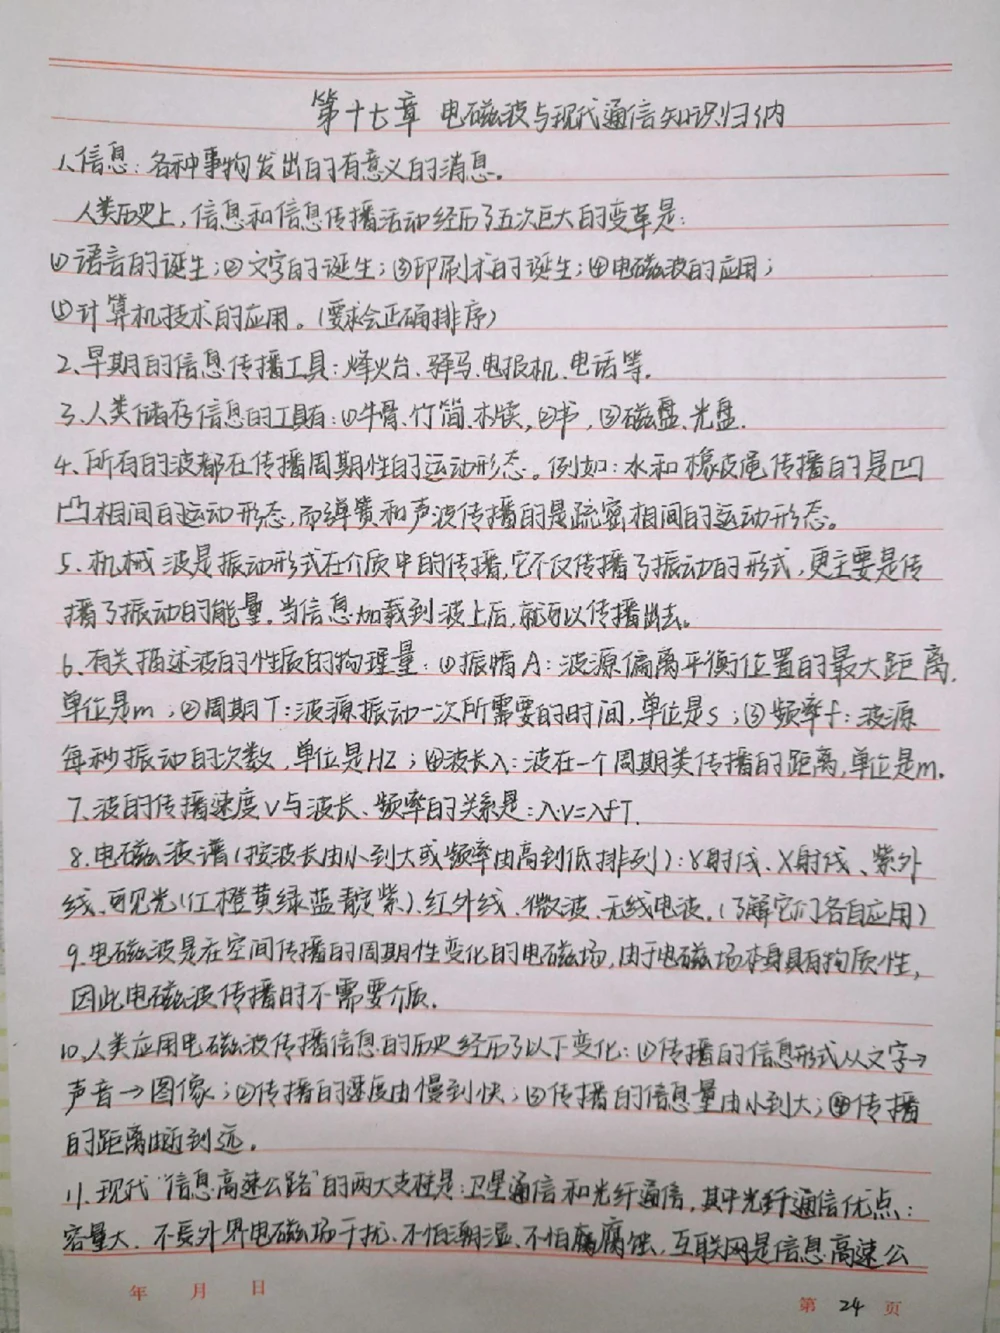 第十七章 电磁波与现代通信知识归纳
1、信息：各种事物发出的有意义的消息。
人类历史上，信息和信息传播活动经历了五次巨大的变革是：
①语言的诞生；②文字的诞生；③印刷术的诞生；④电磁波的应用；
⑤计算机技术的应用。（要求会正确排序）
2、早期的信息传播工具：烽火台、驿马、电报机、电话等。
3、人类储存信息的工具有：①牛骨、竹简、木牍，②书，③磁盘、光盘.
4、所有的波都在传播周期性的运动形态。例如：水和橡皮绳传播的是凹
凸相间的运动形态，而弹簧和声波传播的是疏密相间的运动形态。
5、机械波是振动形式在介质中的传播，它不仅传播了振动的形式，更主要是传
播了振动的能量。当信息加载到波上后，就可以传播出去。
6、有关描述波的性质的物理量：①振幅A：波源偏离平衡位置的最大距离，
单位是m；②周期T：波源振动一次所需要的时间，单位是s；③频率f：波源
每秒振动的次数，单位是HZ；④波长λ：波在一个周期类传播的距离，单位是m。
7、波的传播速度v与波长、频率的关系是：λ、v=λfT.
8、电磁波谱（按波长由小到大或频率由高到低排列）：γ射线、X射线、紫外
线、可见光（红橙黄绿蓝靛紫）、红外线、微波、无线电波。（了解它们各自应用）
9、电磁波是在空间传播的周期性变化的电磁场，由于电磁场本身具有物质性，
因此电磁波传播时不需要介质.
10、人类应用电磁波传播信息的历史经历了以下变化：①传播的信息形式从文字→
声音→图像；②传播的速度由慢到快；③传播的信息量由小到大；④传播
的距离由近到远。
11、现代"信息高速公路"的两大支柱是：卫星通信和光纤通信，其中光纤通信优点：
容量大、不受外界电磁场干扰、不怕潮湿、不怕腐蚀，互联网是信息高速公
年 月 日
第 24 页